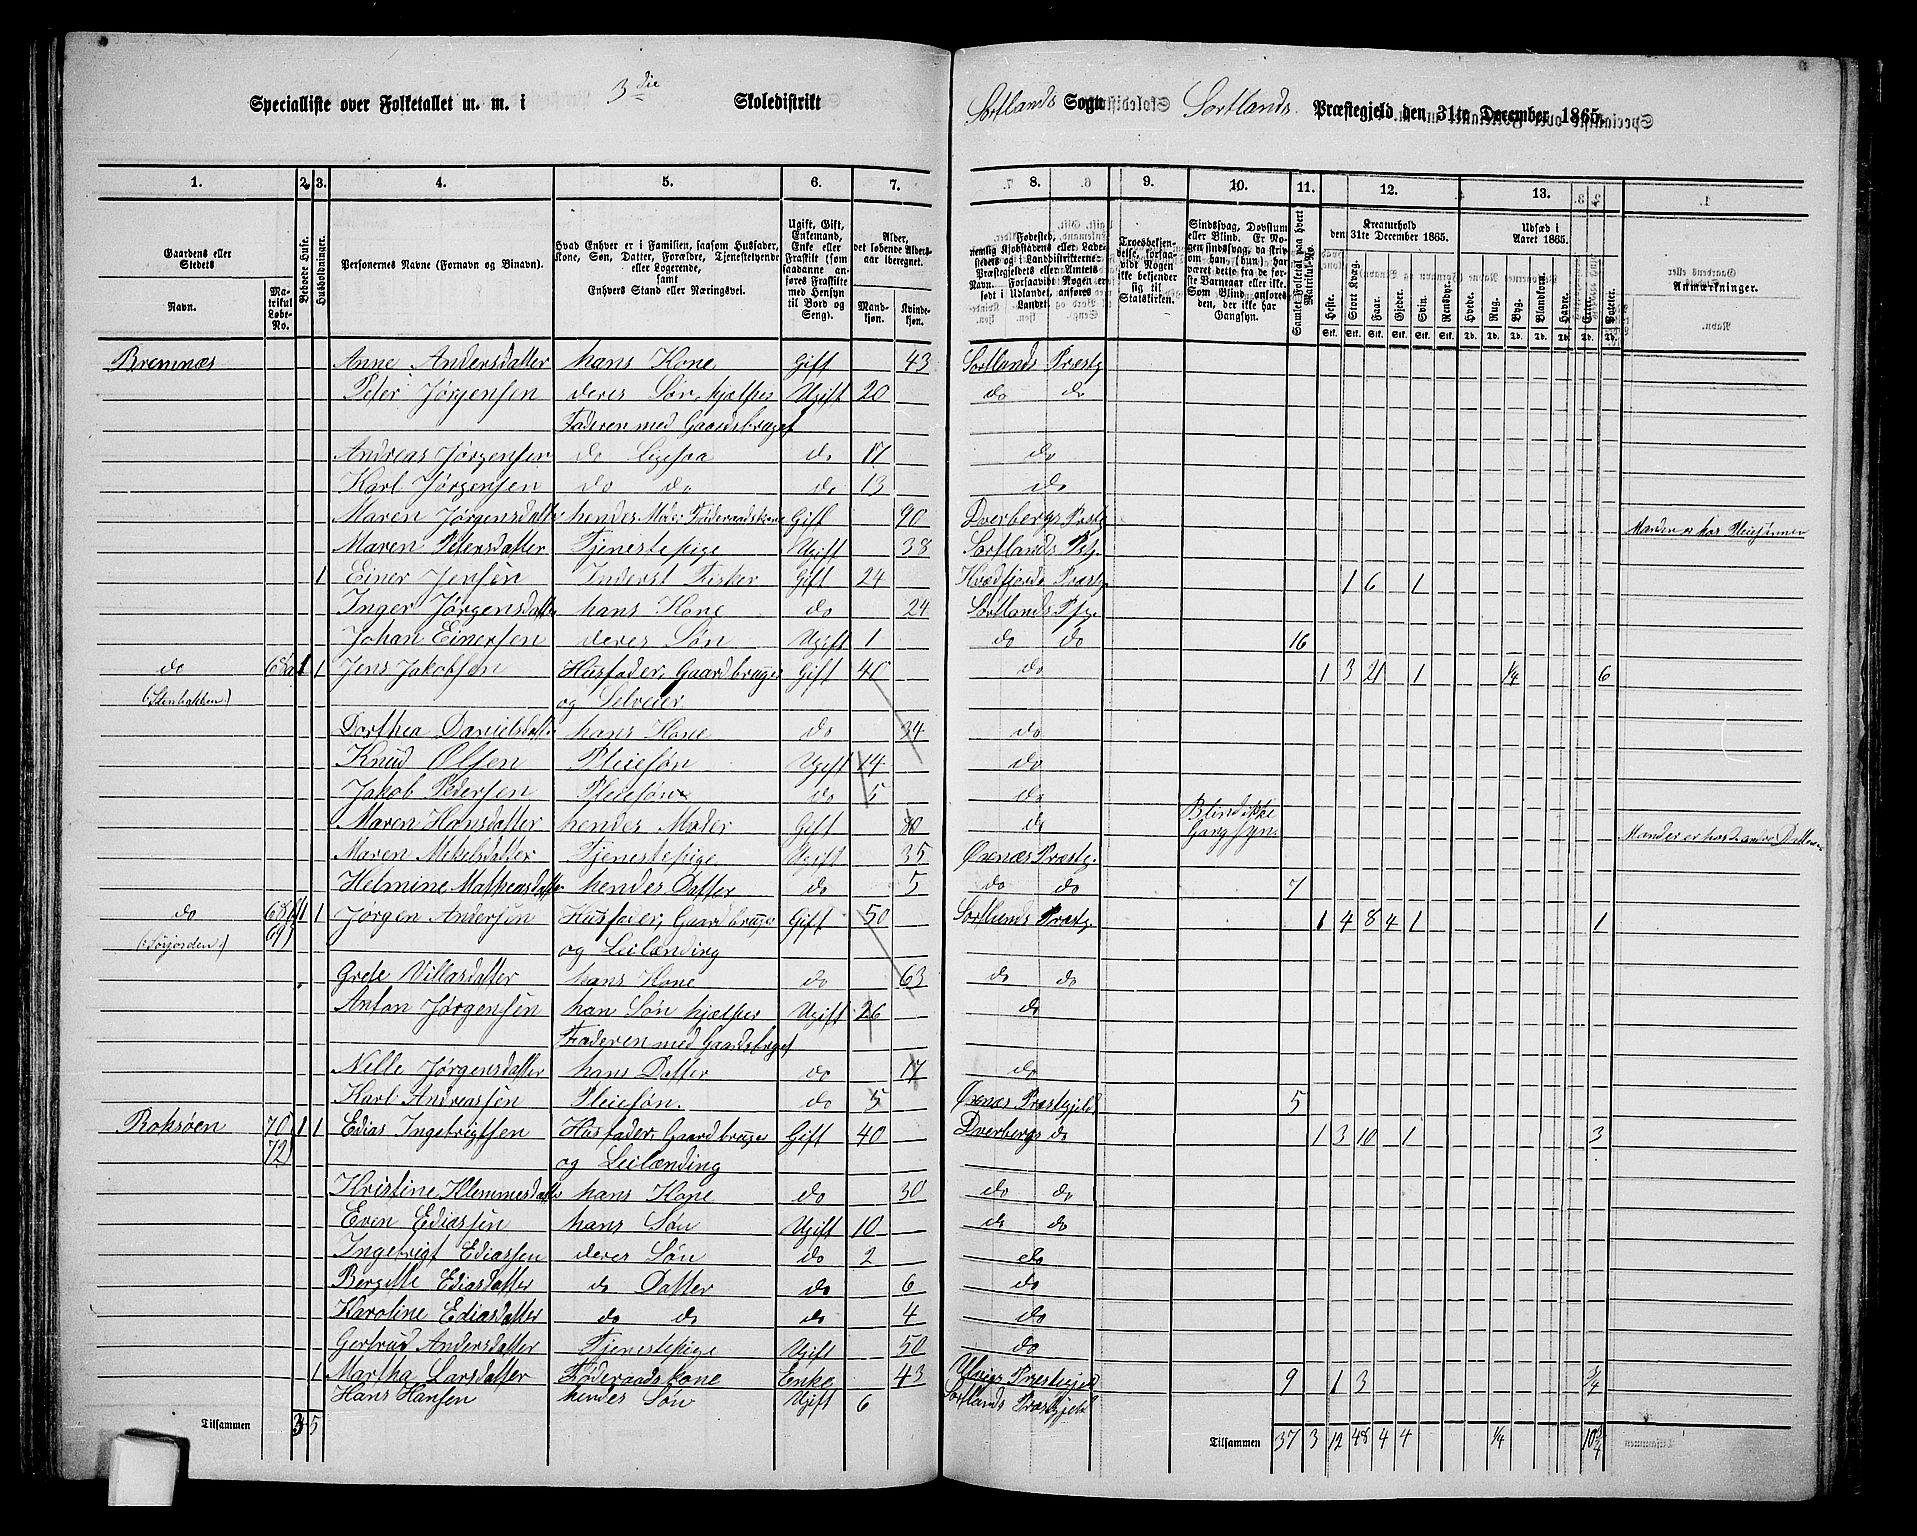 Specialliste over Folketallet m. m. i 3die Skoledistrikt Sortlands Sogn Sortlands Præstegjeld den 31te December 1865.
1. 2. 3. 4. 5. 6. 7. 8. 9. 10. 11. 12. 13.
Gaardens eller Stedets Navn. Matrikul Løbe-No. Beboede Huse. Husholdninger. Personernes Navne (Fornavn og Binavn). Hvad Enhver er i Familien, saasom Husfader, Kone, Søn, Datter, Forældre, Tjenestetyende eller Logerende, samt Enhvers Stand eller Næringsvei. Ugift, Gift, Enkemand, Enke eller Fraskilt (som saadanne anføres Fraskilte med Hensyn til Bord og Seng). Alder, det løbende Aldersaar iberegnet. Mandkjøn. Kvindekjøn.
Sindssvag, Døvstum eller Blind. Samlet Folketal paa hvert Matrikul-No. Kreaturhold den 31te December 1865. Udsæd i Aaret 1865. Anmærkninger.
Heste. Stort Kvæg. Faar. Gjeder. Svin. Rensdyr. Hvede. Rug. Byg. Blandkorn. Havre. Erter. Poteter.
Bremnæs Anne Andersdatter hans Kone Gift 43 Sortlands Præstg.
Peter Jørgensen deres Søn, hjælper Ugift 20 do do
Faderen med Gaardsbruget
Andreas Jørgensen do Ligesaa do 17 do
Karl Jørgensen do do do 13 do
Maren Jørgensdatter hendes Moder Føderaadskone Gift 90 Dverbergs Præstg. Manden er hos Pleiesønnen
Maren Petersdatter Tjenestepige Ugift 38 Sortlands Pstg.
1 Einer Jensen Inderst Fisker Gift 24 Kvædfjords Præstg. 1 6 1
Inger Jørgensdatter hans Kone do 24 Sortlands Pstg.
Johan Einersen deres Søn Ugift 1 do do 16
do 68a 1 1 Jens Jakobsen Husfader, Gaardbruger Gift 40 do 1 3 21 1 1/4 6
(Stenbakken) og Selveier
Dorthea Danielsdatter hans Kone do 34 do
Knud Olsen Pleiesøn Ugift 14 do
Jakob Pedersen Pleiesøn do 5 do
Maren Hansdatter hendes Moder Gift 80 do Blind ikke Gangsyn. Manden er hos den anden Datteren
Maren Mekelsdatter Tjenestepige Ugift 35 Øxnæs Præstg.
Helmine Matheasdatter hendes Datter do 5 do do 7
do 68b 1 1 Jørgen Andersen Husfader, Gaardbruger Gift 50 Sortlands Præstg. 1 4 8 4 1 1
(Sørjorden) 69 og Leilænding
Grete Villasdatter hans Kone do 63 do do
Anton Jørgensen han Søn hjælper Ugift 26 do
Faderen med Gaardsbruget
Nelle Jørgensdatter hans Datter do 17 do
Karl Andreassen Pleiesøn. do 5 Øxnæs Præstegjeld 5
Roksøen 70 1 1 Edias Ingebrigtsen Husfader, Gaardbruger Gift 40 Dverbergs do 1 3 10 1 3
72 og Leilænding
Kristine Klemmesdatter hans Kone do 30 do do
Even Ediassen hans Søn Ugift 10 do do
Ingebrigt Ediassen deres Søn do 2 do
Bergitte Ediasdatter do Datter do 6 do
Karoline Ediasdatter do do do 4 do
Gertrud Andersdatter Tjenestepige Ugift 50 do
1 Martha Larsdatter Føderaadskone Enke 43 Præstegjeld 9 1 3 3/4
Hans Hansen hendes Søn Ugift 6 Sortlands Præstgjeld
Tilsammen 3 5 Tilsammen 37 3 12 48 4 4 1/4 10 3/4